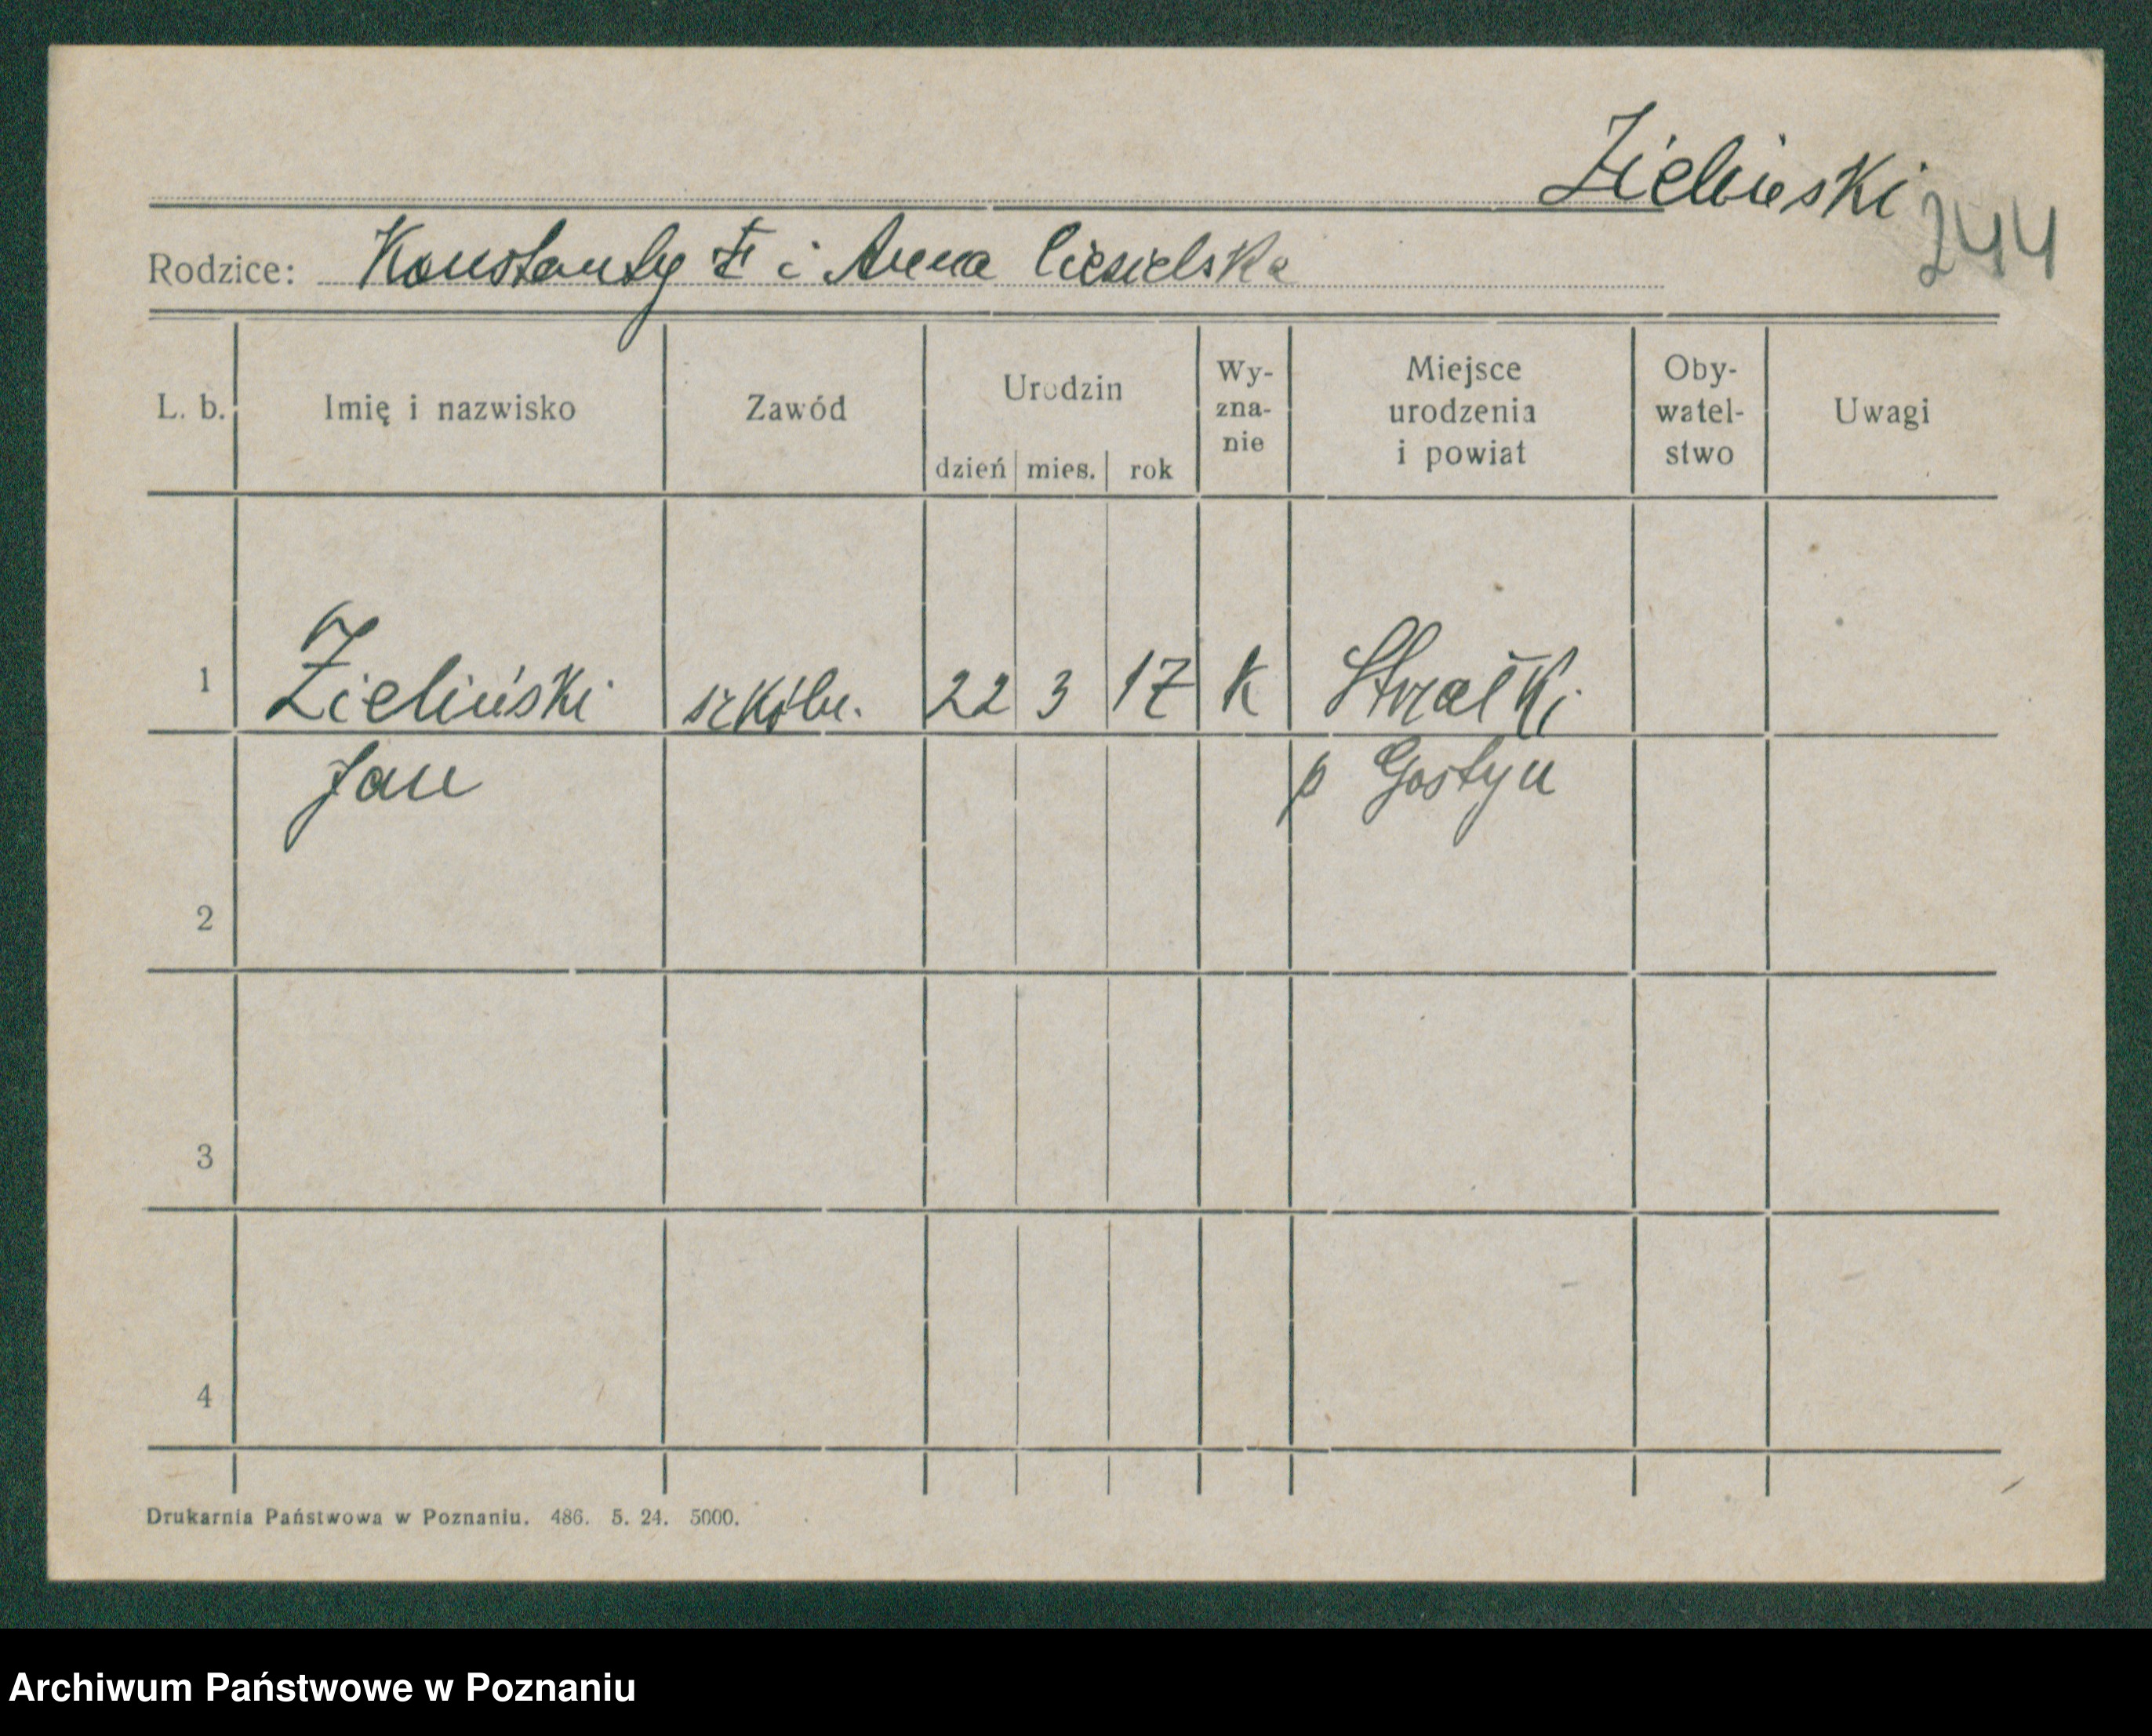 Zieliński
244
Rodzice: Konstanty Z i Anna Ciesielska
L. b. Imię i nazwisko Zawód Urodzin dzień mies. rok Wy-zna-nie Miejsce urodzenia i powiat Oby-watel-stwo Uwagi
1 Zieliński szkoln. 22 3 17 K Strzałki
Jan p Gostyn
2
3
4
Drukarnia Państwowa w Poznaniu. 486. 5. 24. 5000.
Archiwum Państwowe w Poznaniu